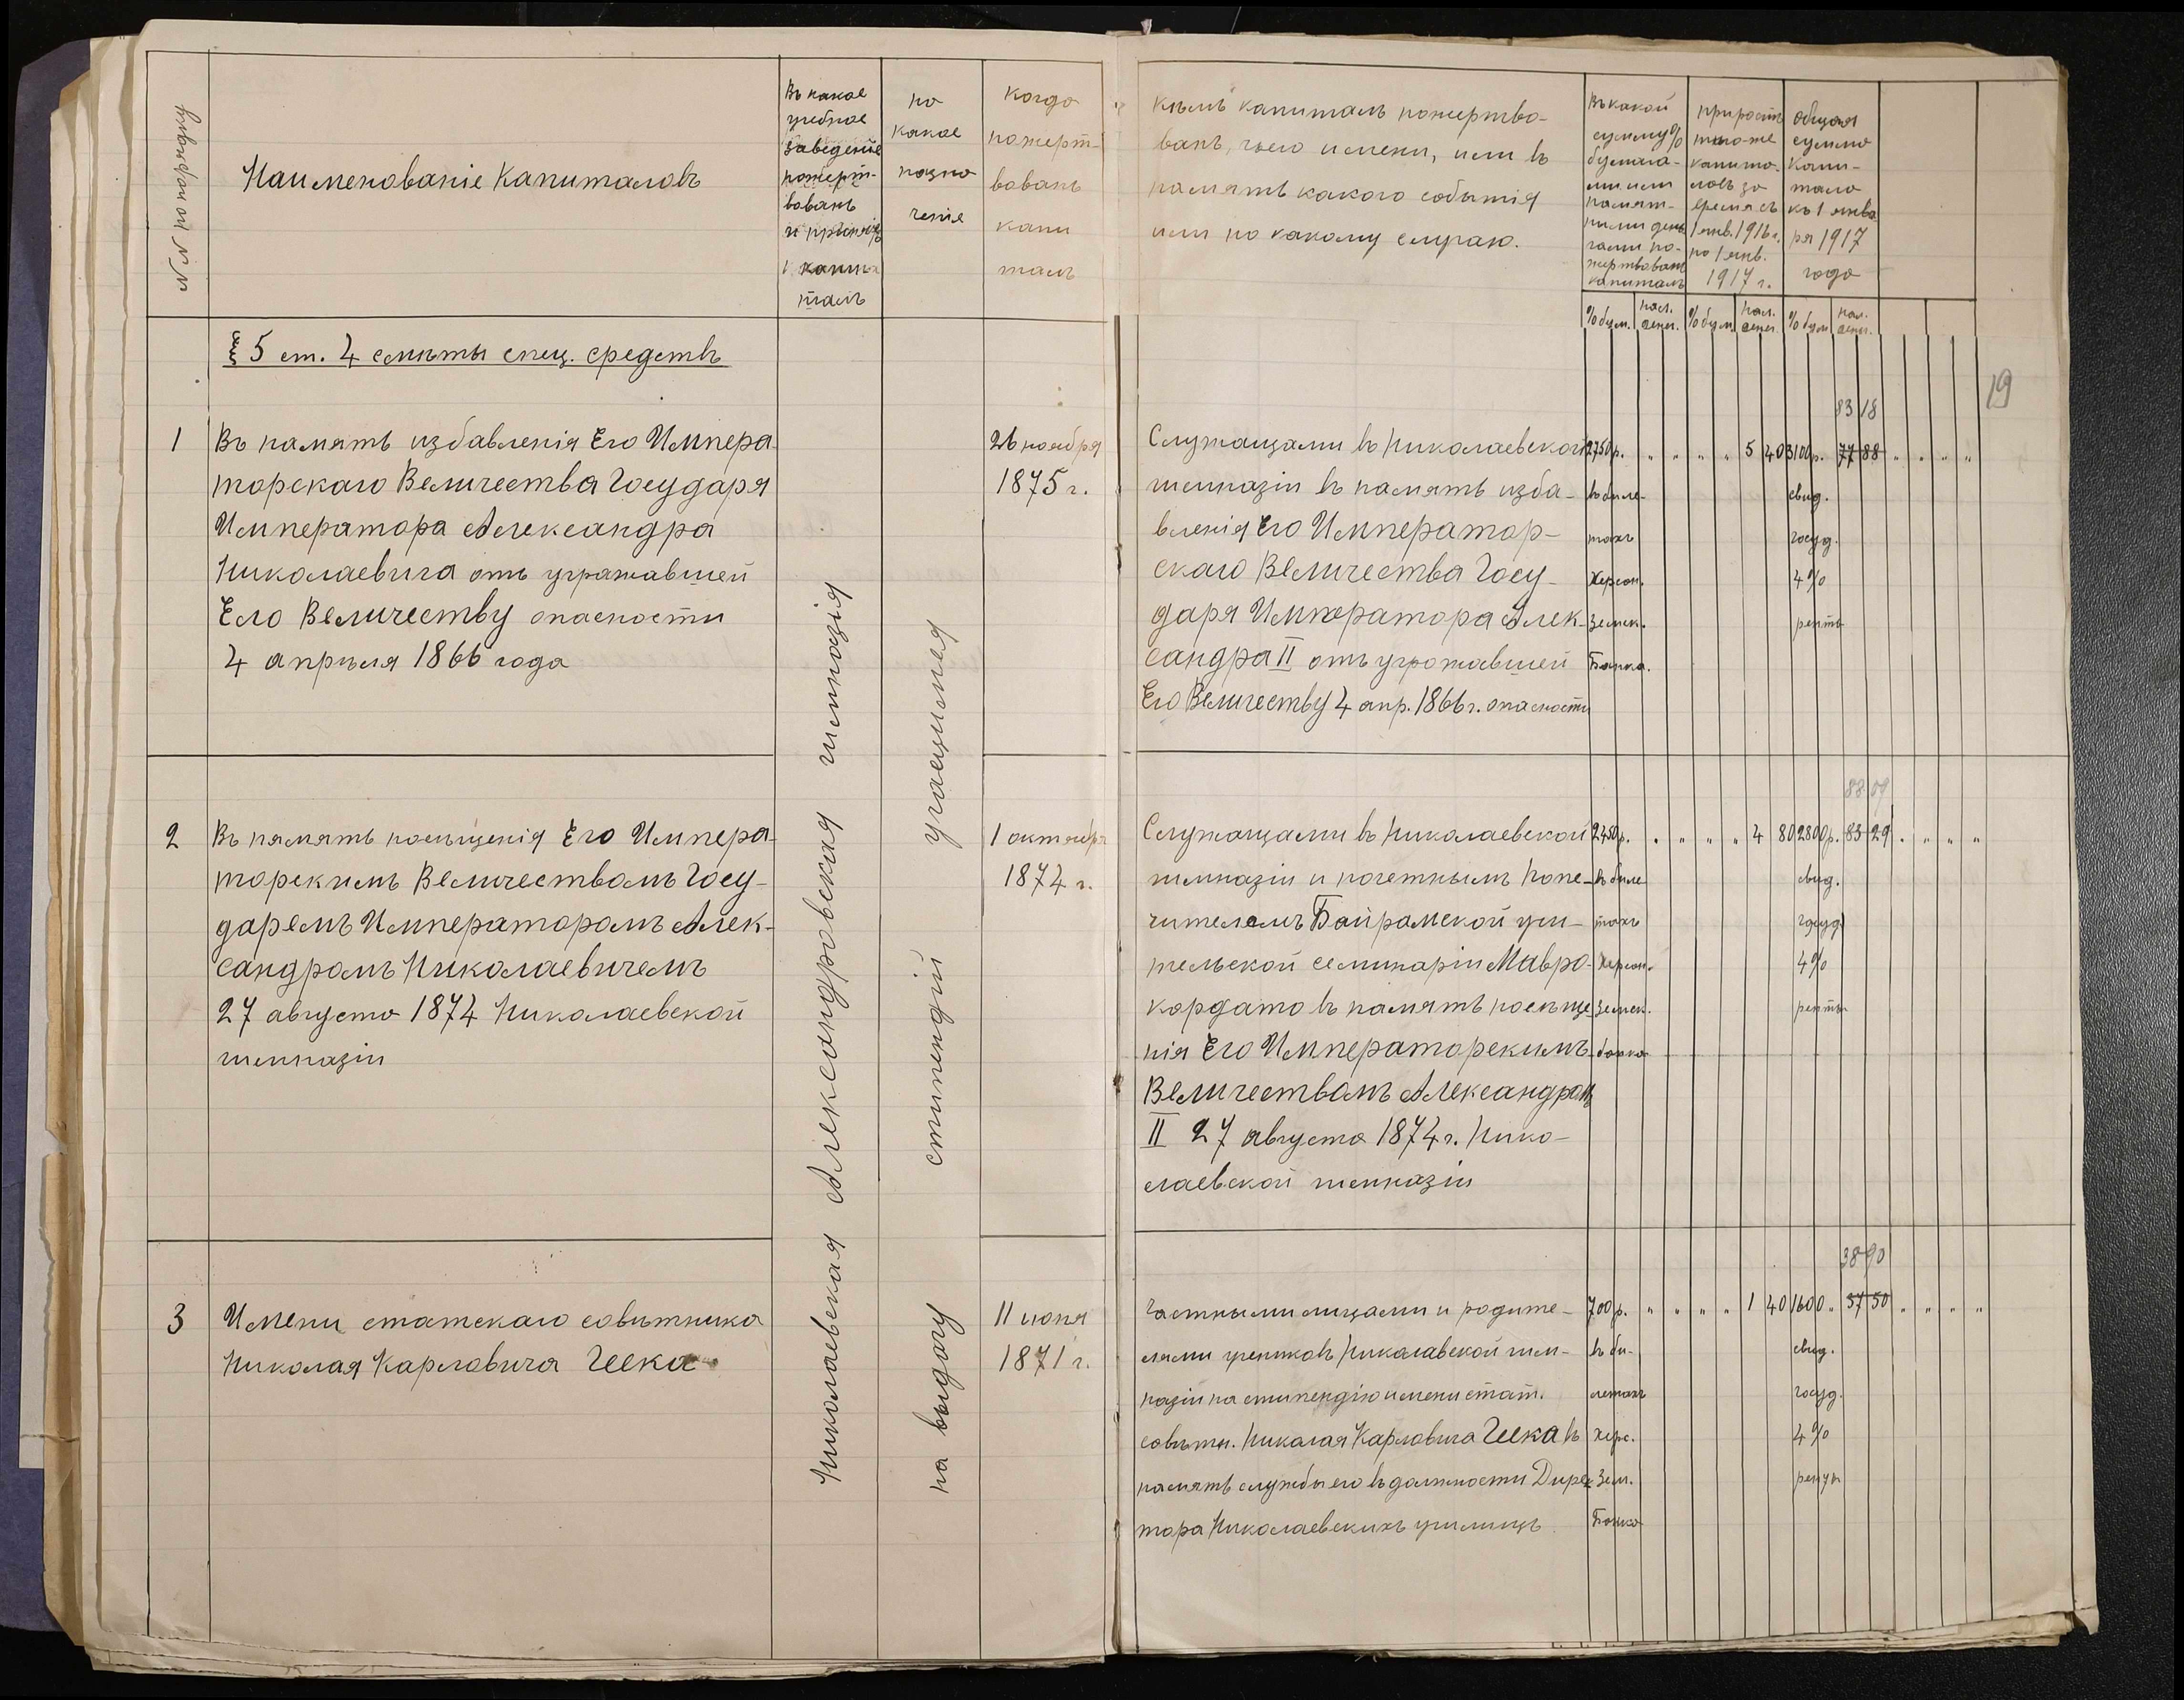 №№ по порядку
Наименованіе Капиталовъ
Въ какое
учебное
заведеніе
пожерт-
вованъ
капи-
талъ
на
какое
назна
ченіе
когда
пожерт-
вованъ
капи
талъ
Кѣмъ капиталъ пожертво-
ванъ, чьего имени, или въ
память какого событія
или по какому случаю.
Въ какой
сумму %
бумага-
ми или
налич-
ными день
гами по-
жертвованъ
капиталъ
приростъ
капита-
ловъ за
время съ
1 янв. 1916 г.
по 1 янв.
1917 г.
общая
сумма
капи-
тала
къ 1 янва
ря 1917
года
% бум. нал. денег. % бум. нал. денег. % бум. нал. денег.
§ 5 ст. 4 смѣты спец. средствъ
19
Николаевская Александровская гимназія
на выдачу стипендій учащимся
1
Въ память избавленія Его Импера-
торскаго Величества Государя
Императора Александра
Николаевича отъ угражавшей
Его Величеству опасности
4 апрѣля 1866 года
26 ноября
1875 г.
Служащами въ Николаевской
гимназіи въ память изба-
вленія Его Император-
скаго Величества Госу-
даря Императора Алек-
сандра II отъ угрожавшей
Его Величеству 4 апр. 1866 г. опасности
2750 р.
въ биле-
тахъ
Херсон.
Земск.
Банка.
" " " " 5 40
83 18
3100 р. 77 88 " " " "
свид.
госуд.
4%
ренты
2
Въ память посѣщенія Его Импера-
торскимъ Величествомъ Госу-
даремъ Императоромъ Алек-
сандромъ Николаевичемъ
27 августа 1874 Николаевской
гимназіи
1 октября
1874 г.
Служащами въ Николаевской
гимназіи и почетнымъ Попе-
чителемъ Байрамской учи-
тельской семинаріи Мавро-
кордато въ память посѣще
нія Его Императорскимъ
Величествомъ Александромъ
II 27 августа 1874 г. Нико-
лаевской гимназіи
2450 р.
въ биле
тахъ
Херсон.
Земск.
банка
" " " " 4 80
88 09
2800 р. 83 29 " " " "
свид.
госуд.
4%
ренты
3
Имени статскаго совѣтника
Николая Карловича Геека
11 июня
1871 г.
Частными лицами и родите-
лями учениковъ Николавской гим-
назіи на стипендію имени стат.
совѣтн. Николая Карловича Геека въ
память службы его въ должности Дирек
тора Николаевскихъ училищъ
700 р.
въ би-
летахъ
Херс.
Зем.
Банка
" " " " 1 40
38 90
1600 " 37 50 " " " "
свид.
госуд.
4%